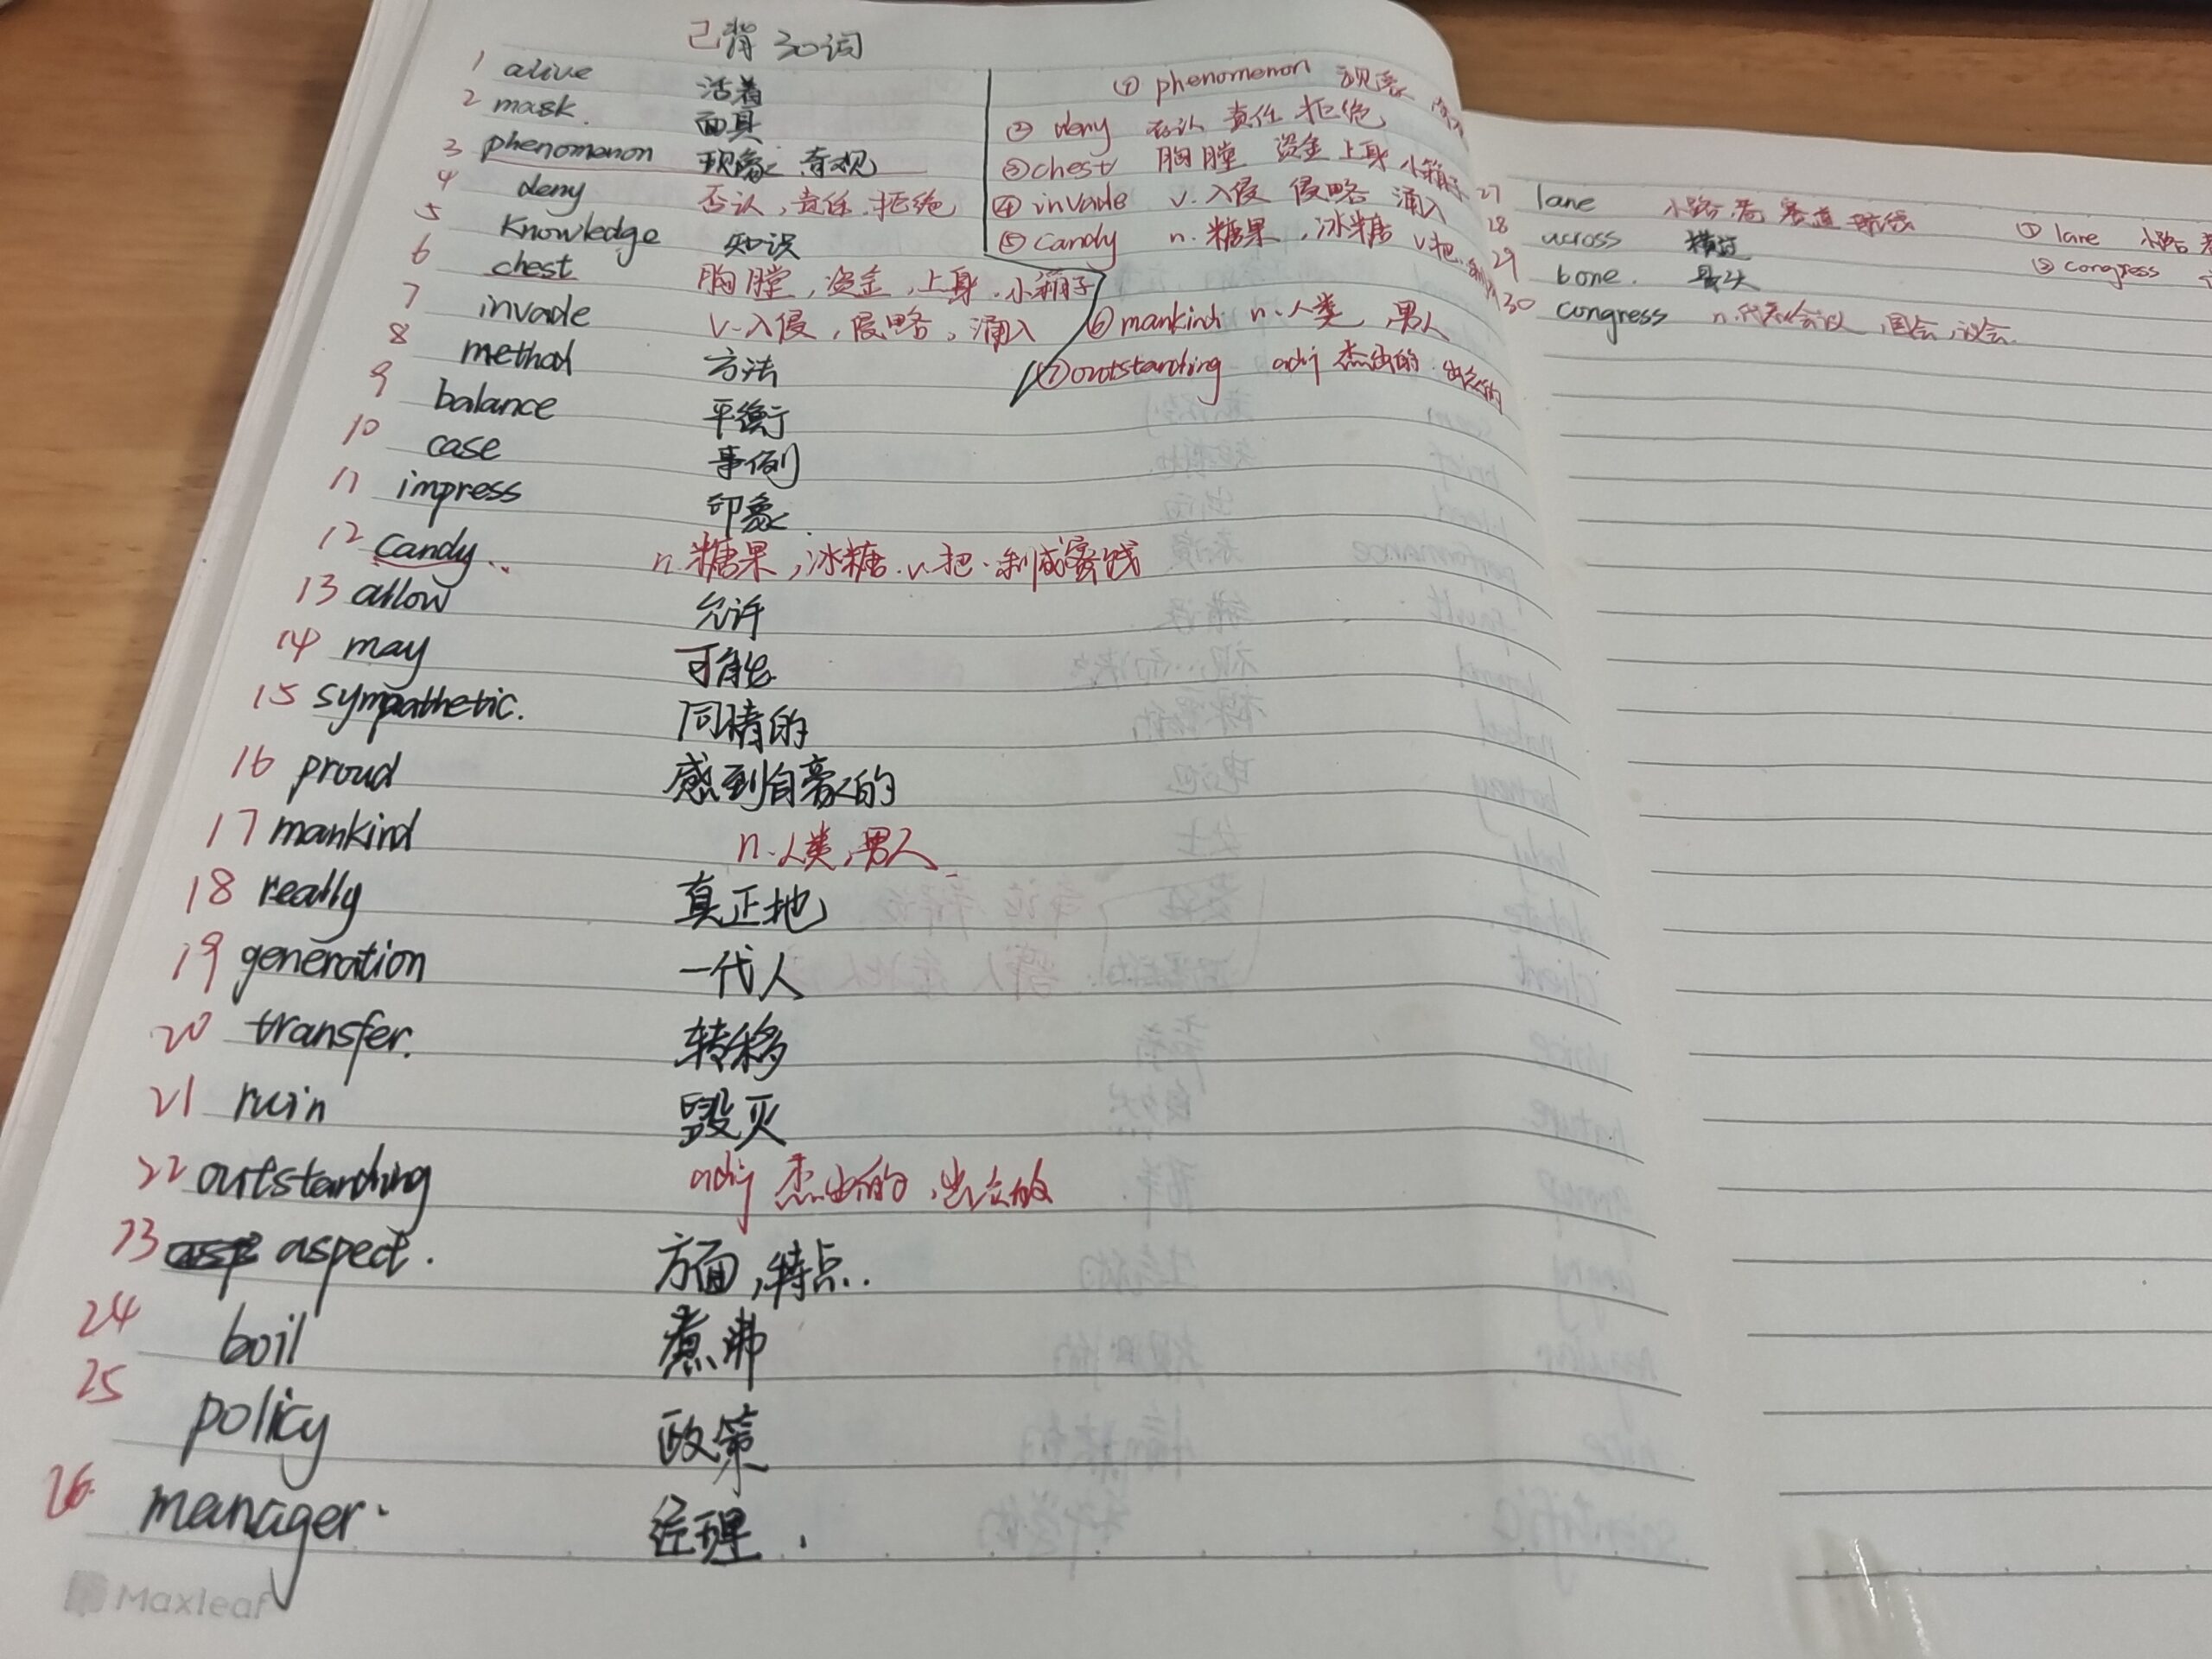 已背30词
1 alive 活着
2 mask. 面具
3 phenomenon 现象 奇观
4 deny 否认,责任.拒绝
5 knowledge 知识
6 chest 胸膛,资金,上身.小箱子
7 invade v.入侵,侵略,涌入
8 method 方法
9 balance 平衡
10 case 事例
11 impress 印象.
12 candy.. n.糖果,冰糖.v.把.制成蜜饯
13 allow 允许
14 may 可能
15 sympathetic. 同情的
16 proud 感到自豪的
17 mankind n.人类,男人
18 really 真正地
19 generation 一代人
20 transfer. 转移
21 ruin 毁灭
22 outstanding adj 杰出的,出众的
23 aspect. 方面,特点.
24 boil 煮沸
25 policy 政策
26 manager. 经理.
Maxleaf
① phenomenon 现象
② deny 否认 责任 拒绝
③ chest 胸膛 资金 上身 小箱子
④ invade v.入侵 侵略 涌入
⑤ candy n.糖果,冰糖 v.把.
⑥ mankind n.人类,男人
⑦ outstanding adj 杰出的.出众的
27 lane 小路 巷 赛道 航线
28 across 横过
29 bone. 骨头
30 congress n.代表会议,国会,议会.
① lane 小路
② congress